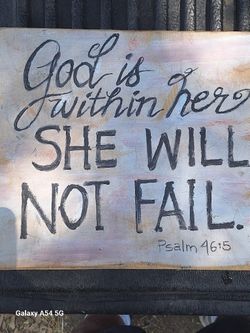 God is
within her
SHE WILL
NOT FAIL.
Psalm 46:5
Galaxy A54 5G